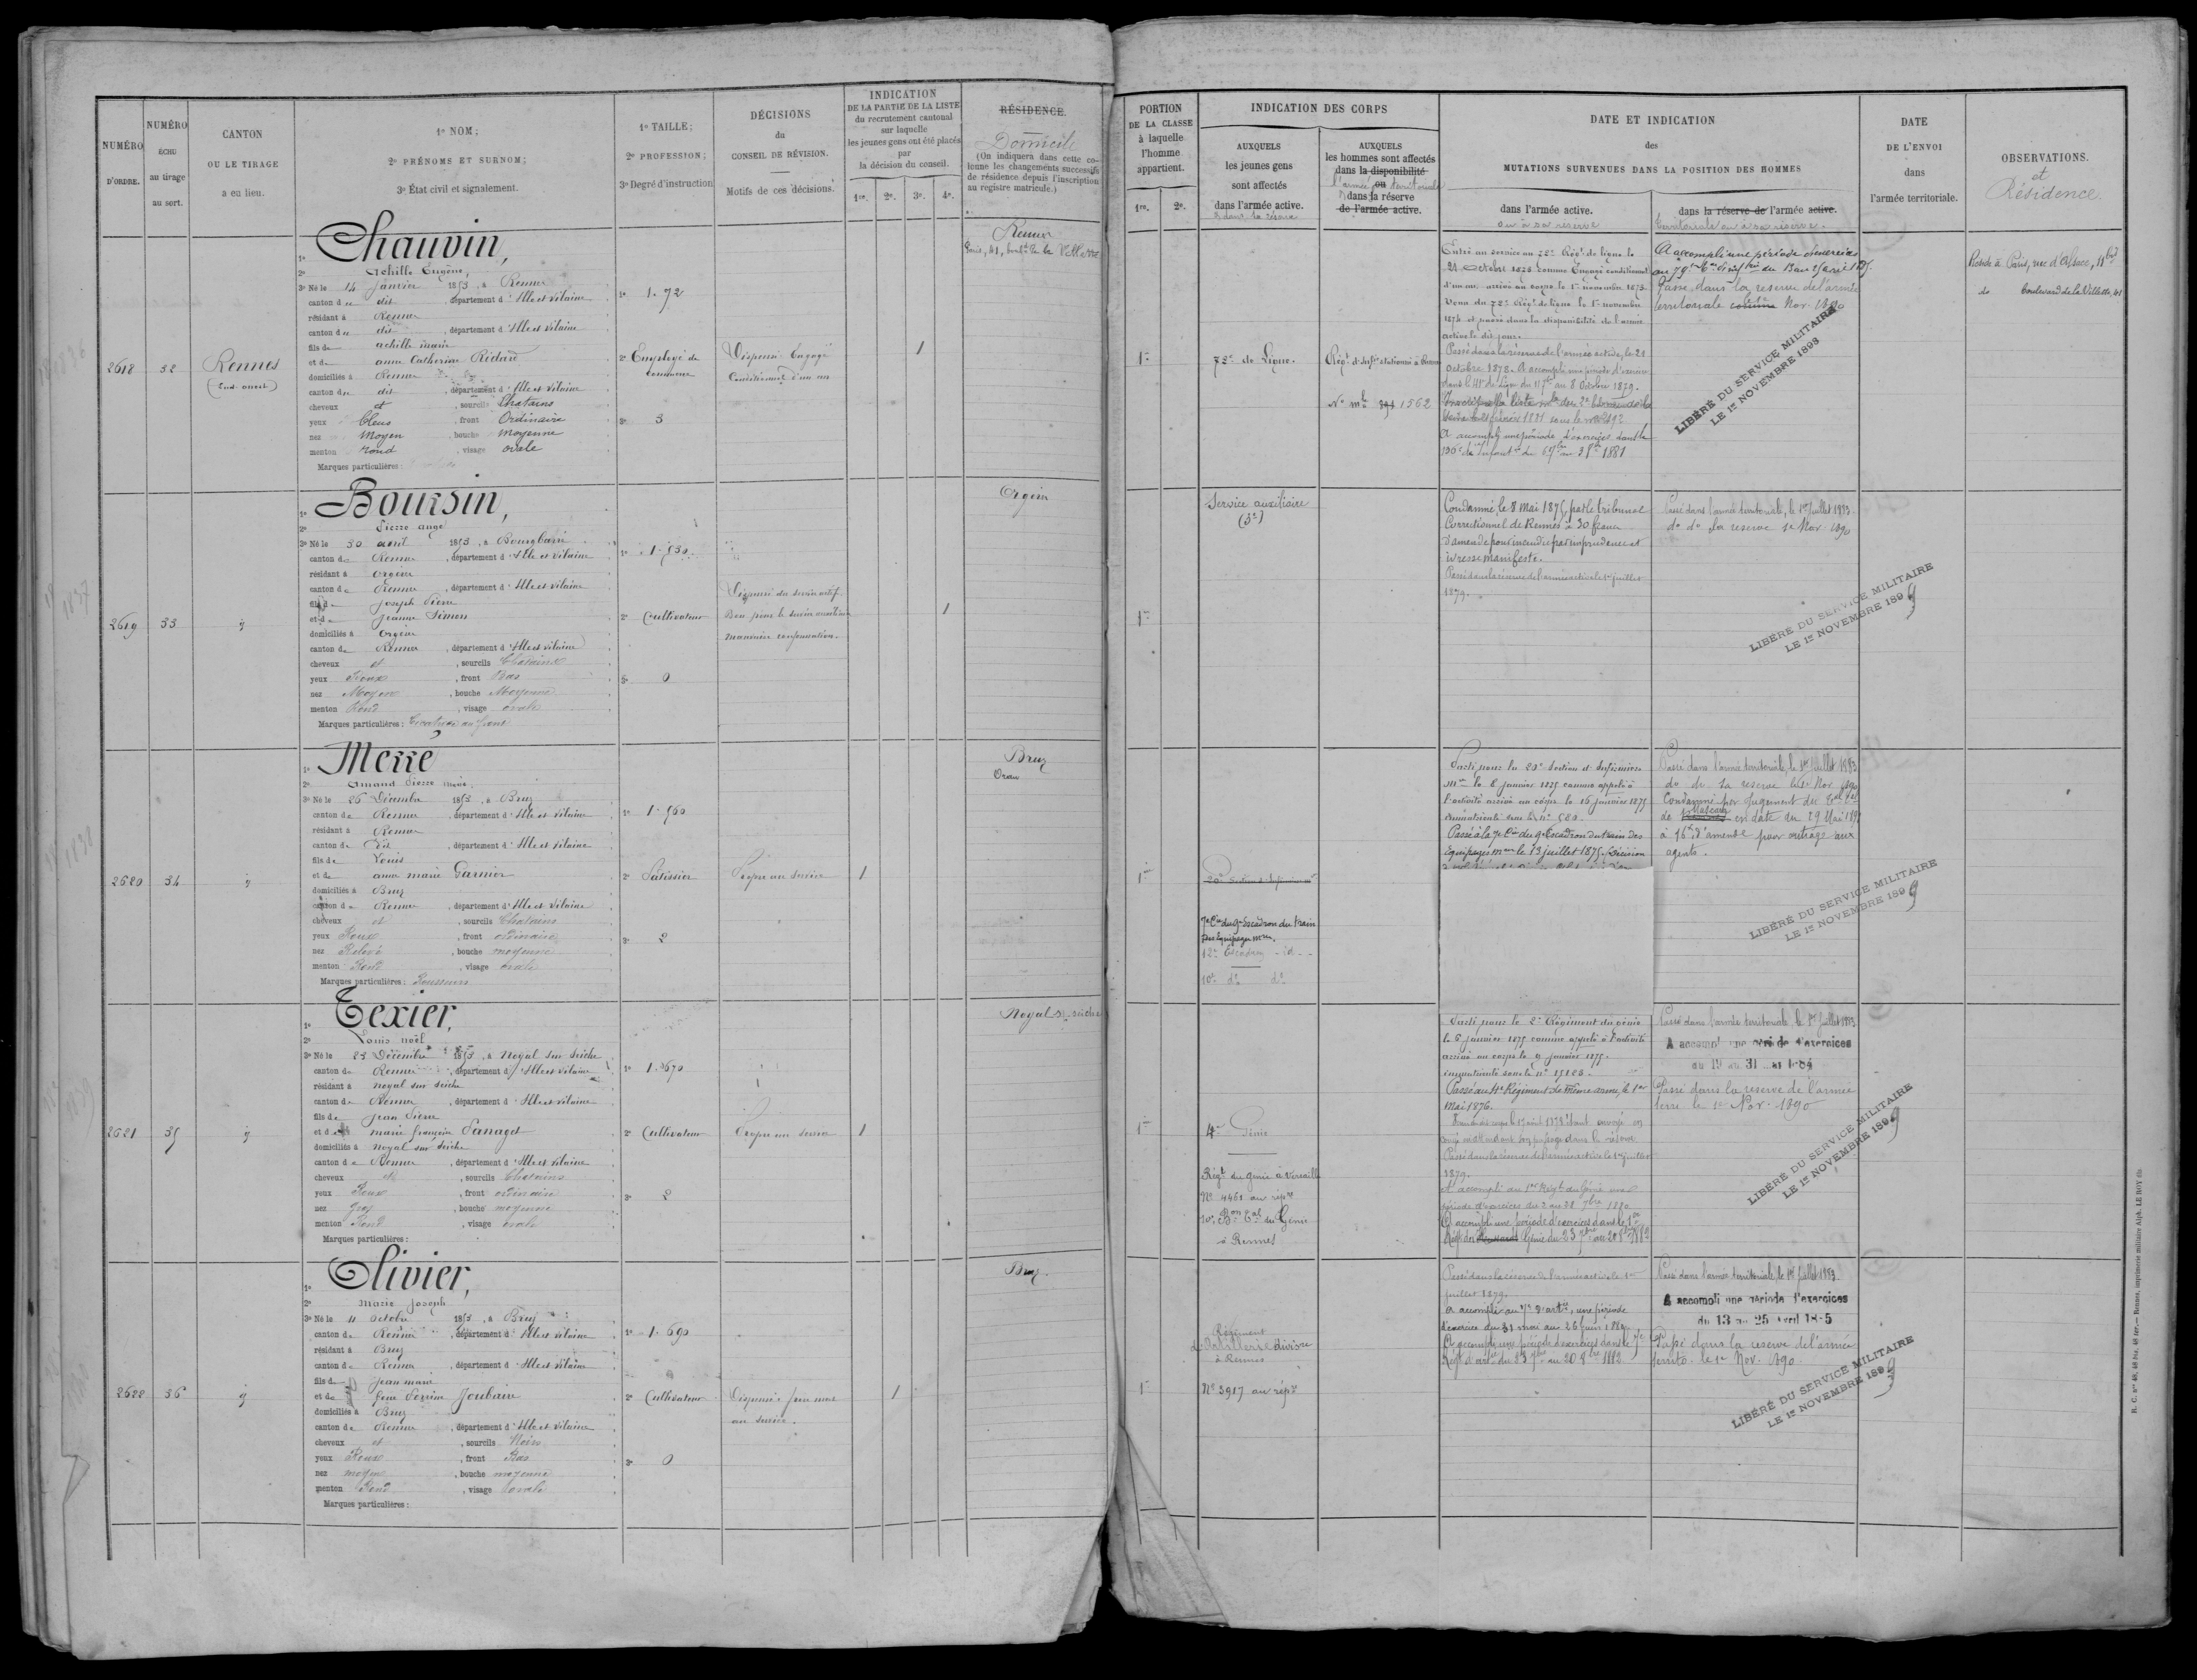 NUMÉRO
D'ORDRE.
NUMÉRO
ÉCHU
au tirage
au sort.
CANTON
OU LE TIRAGE
a eu lieu.
1º NOM;
2º PRÉNOMS ET SURNOM;
3º État civil et signalement.
1º TAILLE;
2º PROFESSION;
3º Degré d'instruction
DÉCISIONS
du
CONSEIL DE RÉVISION.
Motifs de ces décisions.
INDICATION
DE LA PARTIE DE LA LISTE
du recrutement cantonal
sur laquelle
les jeunes gens ont été placés
par
la décision du conseil.
1re. 2e. 3e. 4e.
RÉSIDENCE.
Domicile
(On indiquera dans cette co-
lonne les changements successifs
de résidence depuis l'inscription
au registre matricule.)
2618
32
Rennes
1º Chauvin,
2º Achille Eugène,
3º Né le 14 janvier 1853, à Rennes
canton de dit, département d'Ille et Vilaine
résidant à Rennes
canton de dit, département d'Ille et Vilaine
fils de achille marie
et de anne Catherine Rédard
domiciliés à Rennes
canton de dit, département d'Ille et Vilaine
cheveux et, sourcils Chatains
yeux bleus, front Ordinaire
nez Moyen, bouche Moyenne
menton rond, visage ovale
Marques particulières:
1º 1.72
2º Employé de commerce
3º 3
Dispensé Engagé
Conditionnel d'un an
1
Rennes
Paris, 41, boulrd de la Villette
2619
33
id
1º Boursin,
2º Pierre ange
3º Né le 30 août 1853, à Bourgbarré
canton de Rennes, département d'Ille et Vilaine
résidant à Orgères
canton de Rennes, département d'Ille et Vilaine
fils de Joseph Pierre
et de Jeanne Simon
domiciliés à Orgères
canton de Rennes, département d'Ille et Vilaine
cheveux et, sourcils Chatains
yeux Roux, front Bas
nez Moyen, bouche Moyenne
menton Rond, visage ovale
Marques particulières:
1º 1.530
2º Cultivateur
3º 0
Dispensé du service actif
Bon pour le service auxiliaire
mauvaise conformation.
1
Orgères
2620
34
id
1º Merre
2º Amand Pierre Marie,
3º Né le 26 Décembre 1853, à Bruz
canton de Rennes, département d'Ille et Vilaine
résidant à Rennes
canton de dit, département d'Ille et Vilaine
fils de Louis
et de anne marie Garnier
domiciliés à Bruz
canton de Rennes, département d'Ille et Vilaine
cheveux et, sourcils Chatains
yeux Roux, front ordinaire
nez Relevé, bouche moyenne
menton Rond, visage ovale
Marques particulières: Rousseurs
1º 1.560
2º Pâtissier
3º 2
Propre au service
1
Bruz
Oran
2621
35
id
1º Texier,
2º Louis noël
3º Né le 25 Décembre 1853, à Noyal sur Seiche
canton de Rennes, département d'Ille et Vilaine
résidant à noyal sur seiche
canton de Rennes, département d'Ille et Vilaine
fils de Jean Pierre
et de marie françoise Panaget
domiciliés à noyal sur seiche
canton de Rennes, département d'Ille et Vilaine
cheveux et, sourcils Chatains
yeux Roux, front ordinaire
nez gros, bouche moyenne
menton Rond, visage ovale
Marques particulières:
1º 1.670
2º Cultivateur
3º 2
Propre au service
1
Noyal s. seiche
2622
36
id
1º Olivier,
2º Marie Joseph
3º Né le 11 octobre 1853, à Bruz
canton de Rennes, département d'Ille et Vilaine
résidant à Bruz
canton de Rennes, département d'Ille et Vilaine
fils de Jean marie
et de feue Perrine Joubaire
domiciliés à Bruz
canton de Rennes, département d'Ille et Vilaine
cheveux et, sourcils Noirs
yeux Roux, front Bas
nez moyen, bouche moyenne
menton Rond, visage ovale
Marques particulières:
1º 1.690
2º Cultivateur
3º 0
Dispensé frère mort
au service.
1
Bruz.
PORTION
DE LA CLASSE
à laquelle
l'homme
appartient.
1re. 2e.
INDICATION DES CORPS
AUXQUELS
les jeunes gens
sont affectés
dans l'armée active.
& dans la réserve
AUXQUELS
les hommes sont affectés
dans la disponibilité
ou
l'armée territoriale
& dans la réserve
de l'armée active.
DATE ET INDICATION
des
MUTATIONS SURVENUES DANS LA POSITION DES HOMMES
dans l'armée active.
ou à sa réserve
dans la réserve de l'armée active.
territoriale ou à sa réserve.
DATE
DE L'ENVOI
dans
l'armée territoriale.
OBSERVATIONS.
et
Résidence
1re
72e de Ligne.
Régt d'Infie stationné à Rennes
No mle 391 1562
Entré au service au 72e Régt de ligne le
21 Octobre 1873 comme Engagé conditionnel
d'un an, arrivé au corps le 1er novembre 1873.
Venu du 72e Régt de ligne le 1er novembre
1874 et passé dans la disponibilité de l'armée
active le dit jour.
Passé dans la réserve de l'armée active, le 21
octobre 1878. A accompli une période d'exercices
dans le 41e de Ligne du 11 7bre au 8 Octobre 1879.
A accompli une période d'exercices dans le
A accompli une période d'exercices
Passé dans la réserve de l'armée
territoriale Nov. 1890
LIBÉRÉ DU SERVICE MILITAIRE
LE 1er NOVEMBRE 1898
Réside à Paris, rue d'Alsace, 11bis
do boulevard de la Villette, 41
1re
Service auxiliaire
Condamné le 8 Mai 1875, par le tribunal
Correctionnel de Rennes à 30 francs
d'amende pour incendie par imprudence et
ivresse manifeste.
Passé dans la réserve de l'armée active le 1er juillet
1879.
Passé dans l'armée territoriale, le 1er Juillet 1883.
do do la réserve le 1er Nov. 1890
LIBÉRÉ DU SERVICE MILITAIRE
LE 1er NOVEMBRE 1899
1re
20e Section d'Infirmiers mres
7e Cie du 9e Escadron du train
des Equipages mres.
12e Escadron id
10e do do
Parti pour la 20e Section d'Infirmiers
mres le 8 janvier 1875 comme appelé à
l'activité arrivé au corps le 16 janvier 1875
immatriculé sous le no 580.
Passé à la 7e Cie du 9e Escadron du train des
Equipages mres le 13 juillet 1875. Décision
Passé dans l'armée territoriale, le 1er Juillet 1883
do de la réserve le 1er Nov. 1890
Condamné par jugement du
de Mascara en date du 29 Mai 189
à 16f d'amende pour outrage aux
agents.
LIBÉRÉ DU SERVICE MILITAIRE
LE 1er NOVEMBRE 1899
1re
4e Génie
Régt du génie à Versailles
No 4461 au répre
10e Bon Cal du Génie
à Rennes
Parti pour le 2e Régiment du génie
le 6 janvier 1875 comme appelé à l'activité
arrivé au corps le 9 janvier 1875.
immatriculé sous le no
Passé au 4e Régiment de même arme, le 1er
Mai 1876.
congé en attendant son passage dans la réserve
Passé dans la réserve de l'armée active le 1er juillet
1879.
A accompli au 1er Régt du Génie une
période d'exercices du 2 au 28 7bre 1880
A accompli une période d'exercices dans le 1er
Régt du Génie du 23 7bre au 20 8bre 1882
Passé dans l'armée territoriale le 1er Juillet 1883
A accompli une période d'exercices
du 19 au 31
Passé dans la réserve de l'armée
terre le 1er Nov. 1890
LIBÉRÉ DU SERVICE MILITAIRE
LE 1er NOVEMBRE 1899
1re
Régiment
d'Artillerie divisre
à Rennes
No 3917 au répre
Passé dans la réserve de l'armée active le 1er
juillet 1879.
A accompli au 7e d'artie, une période
d'exercices du 31 mai au 26 juin 1880.
A accompli une période d'exercices dans le 7e
Régt d'artie du 23 7bre au 20 8bre 1882
Passé dans l'armée territoriale, le 1er Juillet 1883.
A accompli une période d'exercices
du 13 au 25 avril 1885
Passé dans la réserve de l'armée
territo. le 1er Nov. 1890
LIBÉRÉ DU SERVICE MILITAIRE
LE 1er NOVEMBRE 1899
Rennes, imprimerie militaire Alph. LE ROY fils